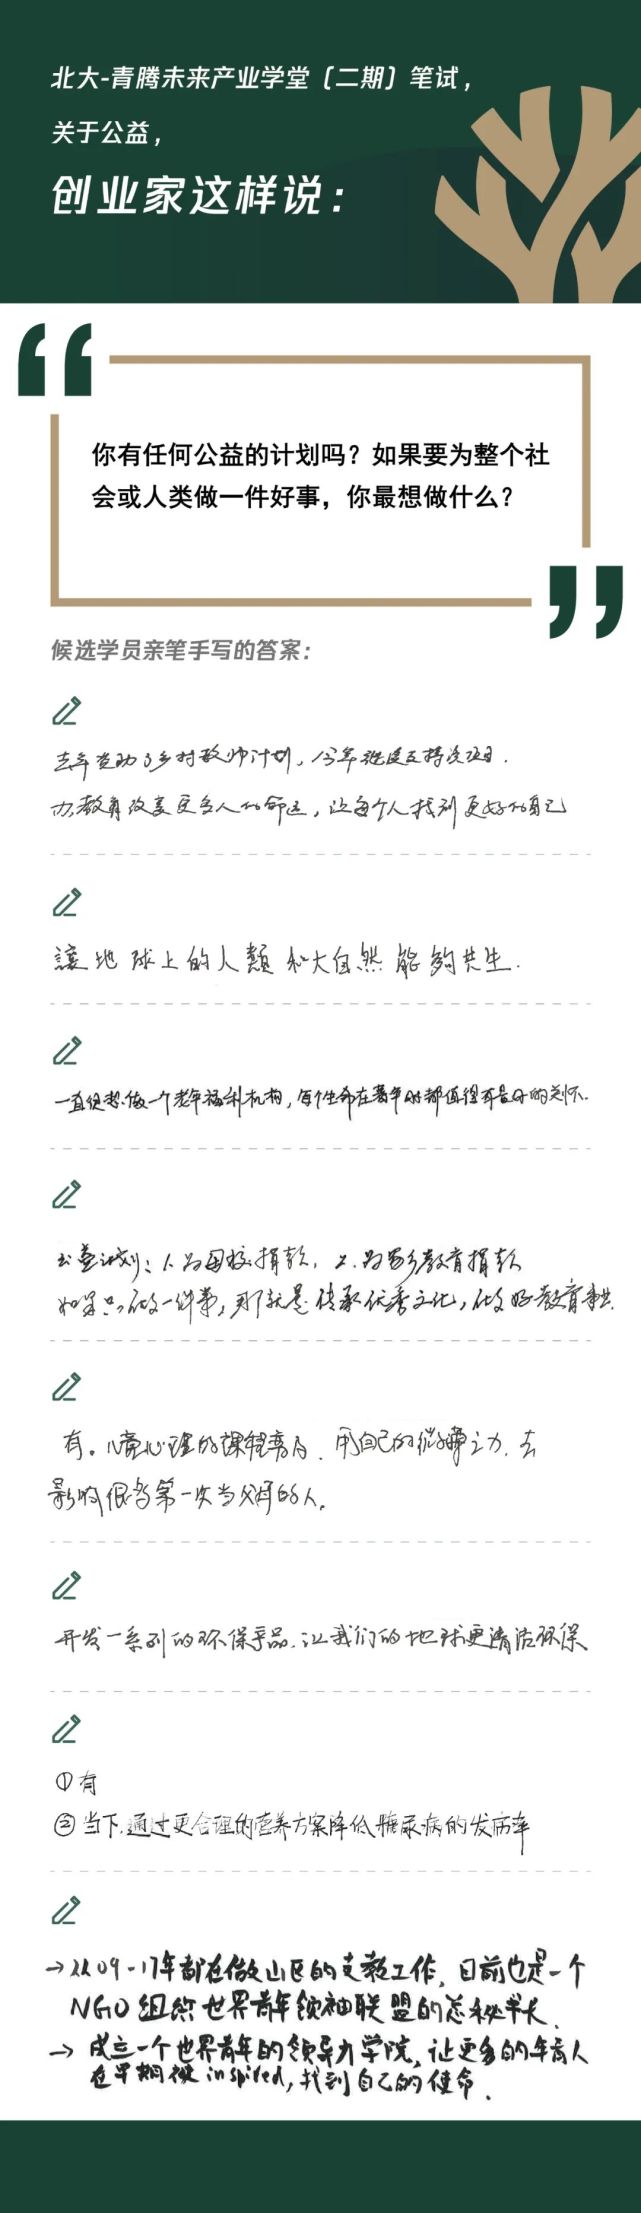 北大-青腾未来产业学堂（二期）笔试，
关于公益，
创业家这样说：
你有任何公益的计划吗？如果要为整个社
会或人类做一件好事，你最想做什么？
候选学员亲笔手写的答案：
去年资助了乡村教师计划，今年继续支持该项目.
办教育改变更多人的命运，让每个人找到更好的自己
讓地球上的人類和大自然能夠共生.
一直很想做一个老年福利机构，每个生命在暮年时都值得有最好的关怀.
公益计划：1.为母校捐款，2.为家乡教育捐款
如果只做一件事，那就是传承优秀文化，做好教育事业.
有。儿童心理的课程普及.用自己的绵薄之力.去
影响很多第一次当父母的人。
开发一系列的环保产品.让我们的地球更清洁环保
①有
②当下.通过更合理的营养方案降低糖尿病的发病率
→从09-17年都在做山区的支教工作，目前也是一个
NGO组织世界青年领袖联盟的总秘书长.
→成立一个世界青年的领导力学院，让更多的年青人
在早期被inspired,找到自己的使命.